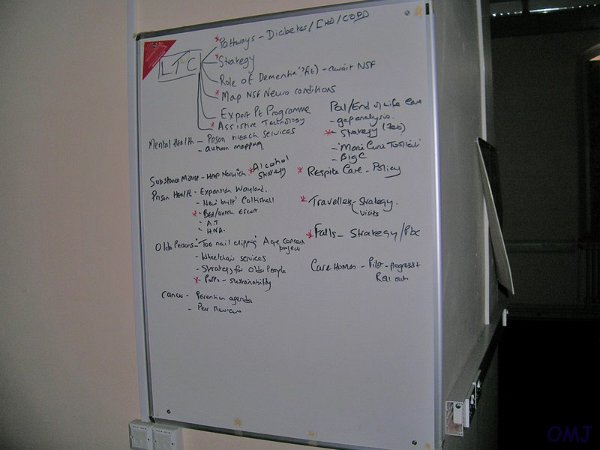 LTC
Pathways - Diabetes/CHD/COPD
Strategy
Role of Dementia - await NSF
Map NSF Neuro conditions
Expert Pt Programme
Assistive Technology
Mental Health - Prison inreach services
- autism mapping
Substance Misuse - Map Norwich
Alcohol Strategy
Prison Health - Expansion Wayland.
- New built Coltishall
- Bed/
- A.T
- HNA.
Olde Persons - Toe nail clipping Age Concern
project
- Wheelchair services
- Strategy for Older People
- - sustainability
Cancer - Prevention agenda
- Peer Reviews
Pall/End of Life Care
- gap analysis
- Strategy
- Marie Curie
- BIGC
Respite Care - Policy
Traveller - Strategy
Visits
Falls - Strategy/Pbc
Care Homes - Pilot - progress +
Roll out
OMJ